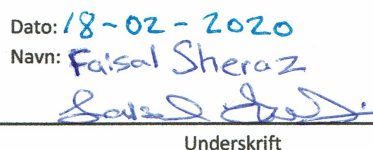 Dato: 18-02-2020
Navn: Faisal Sheraz
Underskrift